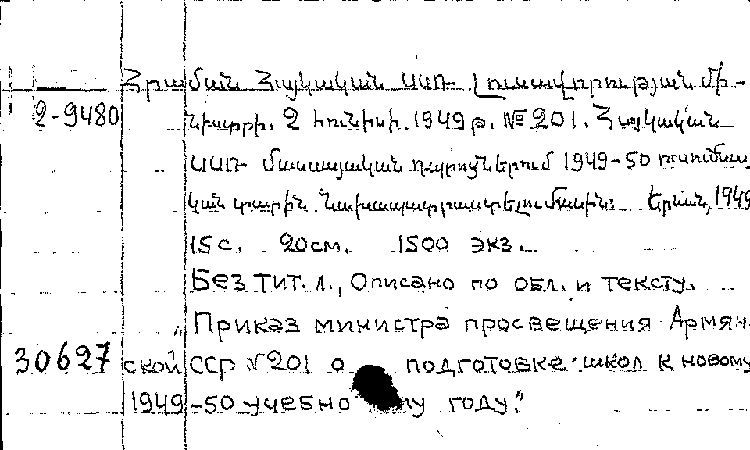 Հրաման Հայկական ՍՍՌ Լուսավորության մի-
2-9480 նիստրի. 2 հունիսի. 1949թ. № 201. Հայկական
ՍՍՌ մասսայական դպրոցներում 1949-50 ուսումնա
կան տարին նախապատրաստելու մասին: Երևան, 1949
15с. 20см. 1500 экз.
Без тит. л., Описано по обл. и тексту.
"Приказ министра просвещения Армян-
30627 ской ССР №201 о подготовке школ к новому
1949-50 учебно му году."